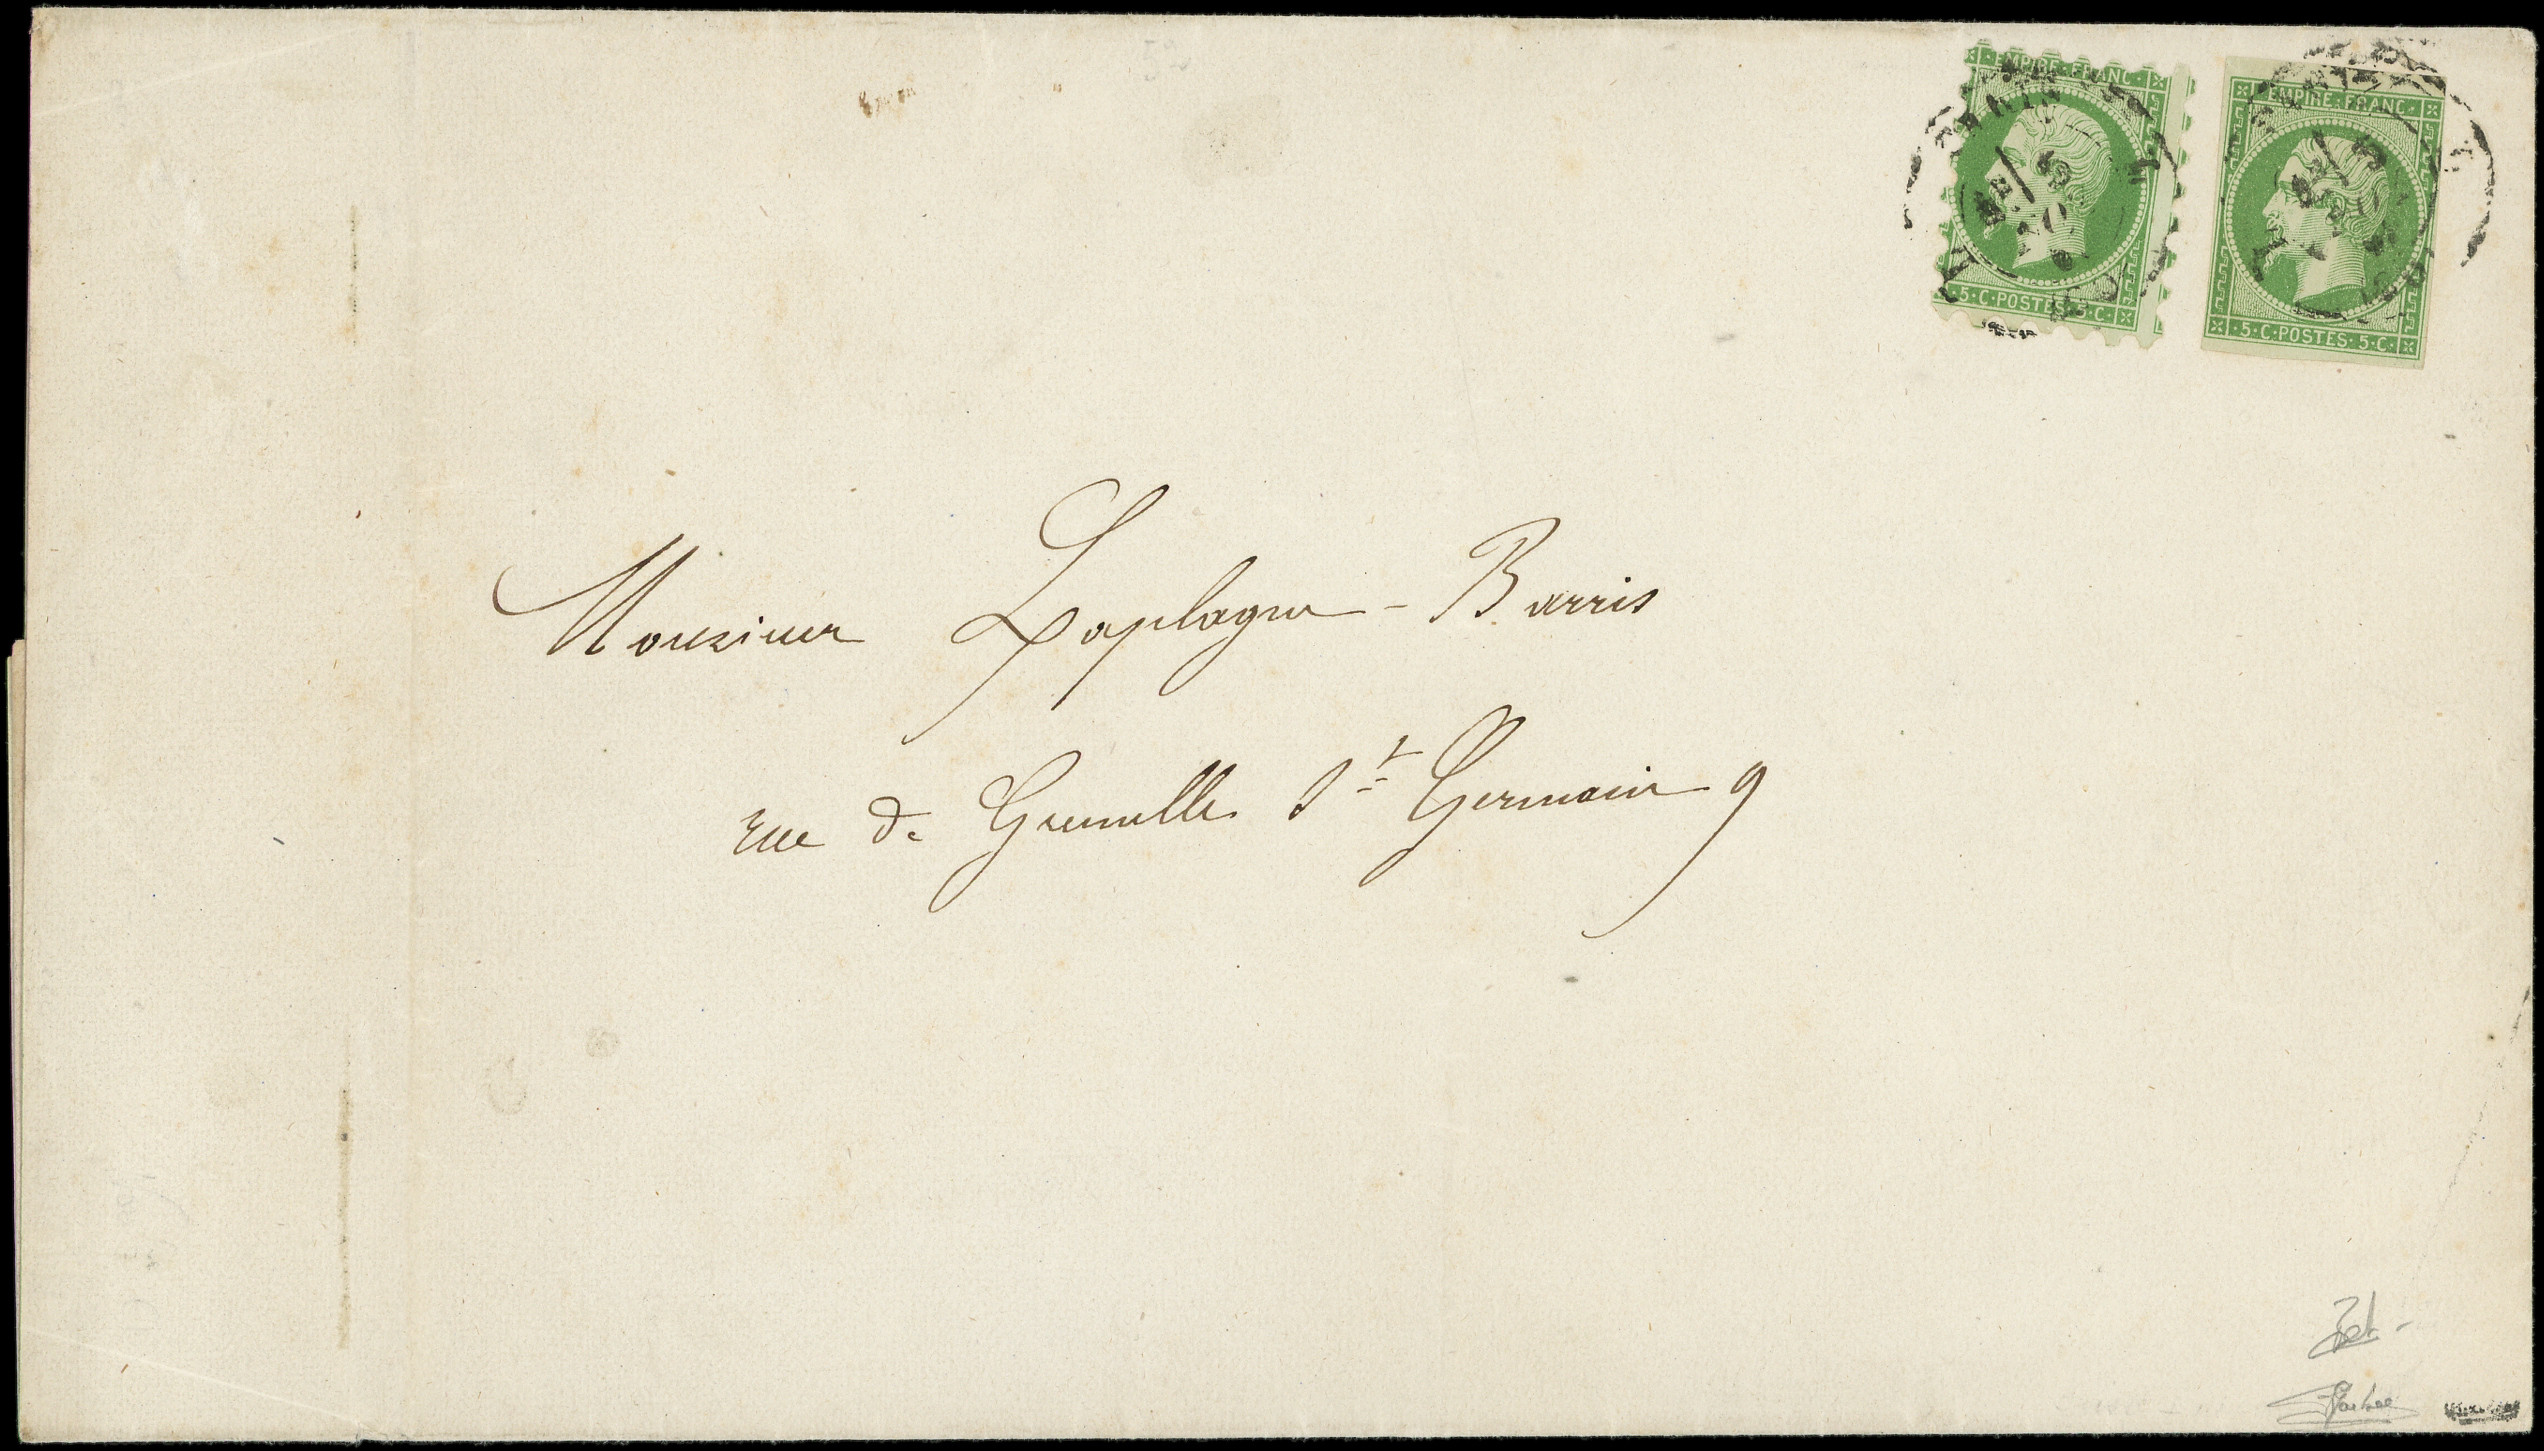 52
EMPIRE·FRANC·
·5·C·POSTES·5·C·
PARIS
EMPIRE·FRANC·
·5·C·POSTES·5·C·
PARIS
Monsieur Laplagne-Barris
rue de Grenelle St Germain 9